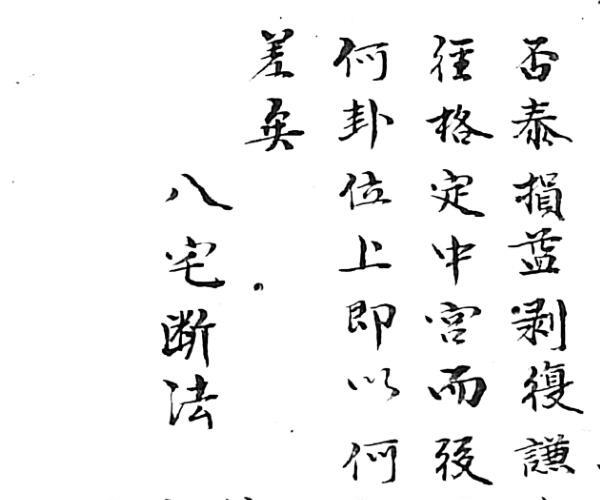 否泰損益剥復謙
徑格定中宮而後
何卦位上即以何
差矣
八宅断法